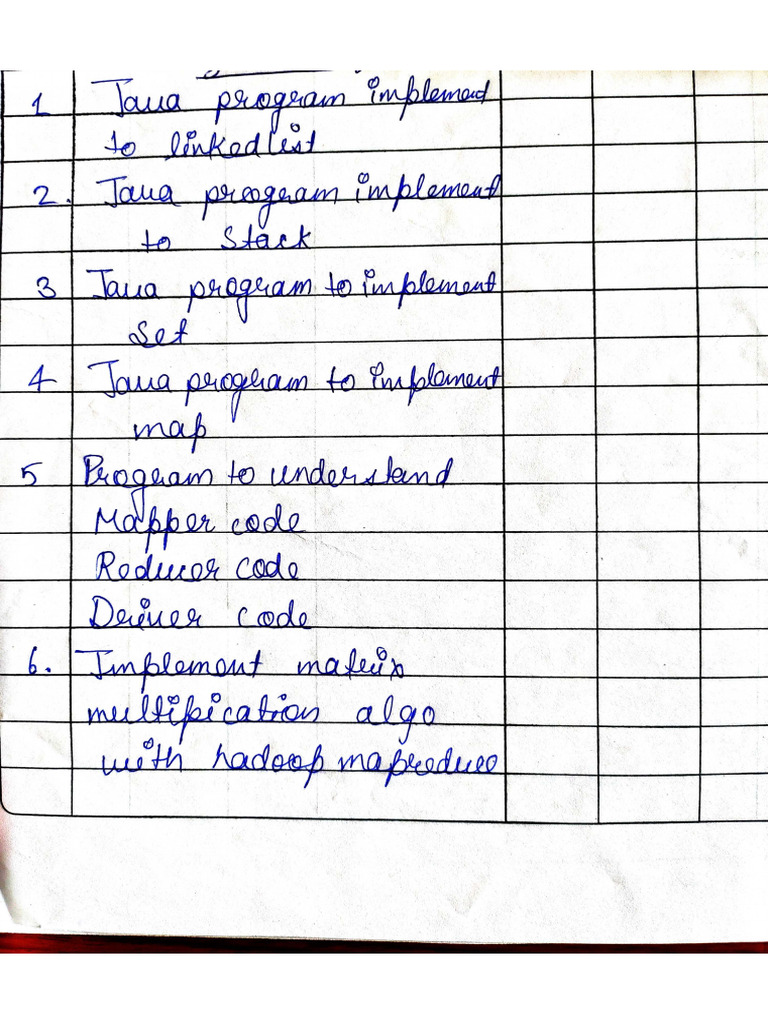 1 Java program implement
to linkedlist
2. Java program implement
to stack
3 Java program to implement
Set
4 Java program to implement
map
5 Program to understand
Mapper code
Reducer code
Driver code
6. Implement matrix
multipication algo
with hadoop mapreduce